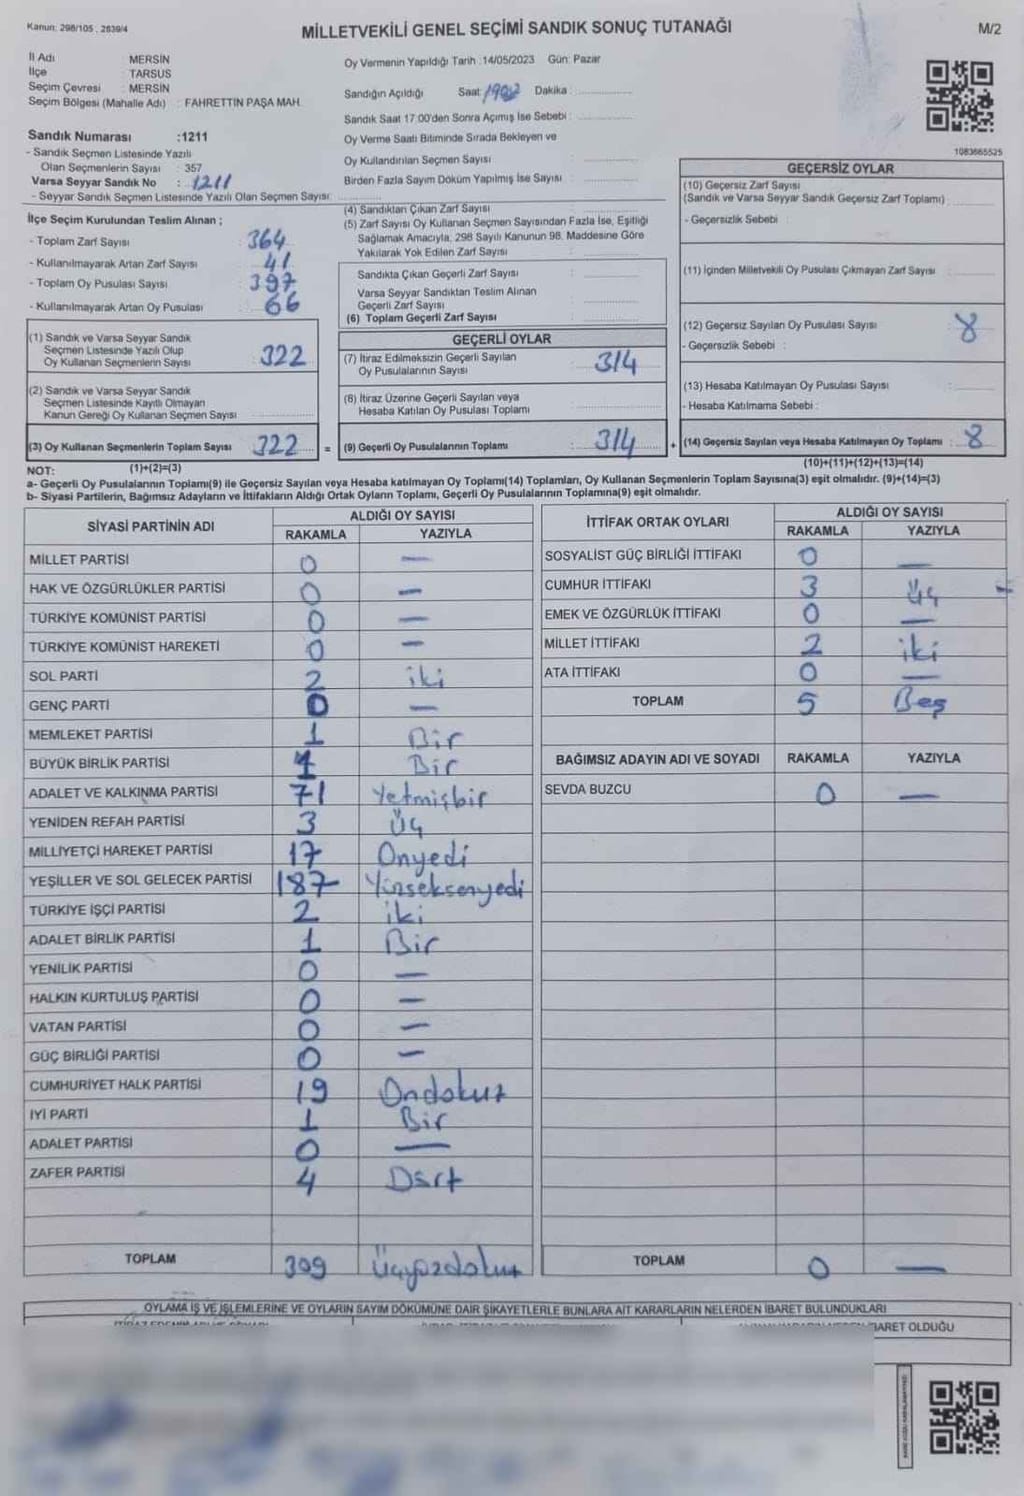 Kanun: 298/105 , 2839/4
MİLLETVEKİLİ GENEL SEÇİMİ SANDIK SONUÇ TUTANAĞI
M/2
İl Adı MERSİN
İlçe TARSUS
Seçim Çevresi : MERSİN
Seçim Bölgesi (Mahalle Adı) : FAHRETTİN PAŞA MAH.
Sandık Numarası :1211
- Sandık Seçmen Listesinde Yazılı
Olan Seçmenlerin Sayısı : 357
Varsa Seyyar Sandık No : 1211
- Seyyar Sandık Seçmen Listesinde Yazılı Olan Seçmen Sayısı:
Oy Vermenin Yapıldığı Tarih :14/05/2023 Gün: Pazar
Sandığın Açıldığı Saat: Dakika :
Sandık Saat 17:00'den Sonra Açımış İse Sebebi :
Oy Verme Saati Bitiminde Sırada Bekleyen ve
Oy Kullandırılan Seçmen Sayısı :
Birden Fazla Sayım Döküm Yapılmış İse Sayısı :
1083665525
İlçe Seçim Kurulundan Teslim Alınan ;
- Toplam Zarf Sayısı : 364
- Kullanılmayarak Artan Zarf Sayısı : 41
- Toplam Oy Pusulası Sayısı : 397
- Kullanılmayarak Artan Oy Pusulası : 66
(1) Sandık ve Varsa Seyyar Sandık
Seçmen Listesinde Yazılı Olup
Oy Kullanan Seçmenlerin Sayısı : 322
(2) Sandık ve Varsa Seyyar Sandık
Seçmen Listesinde Kayıtlı Olmayan
Kanun Gereği Oy Kullanan Seçmen Sayısı :
(3) Oy Kullanan Seçmenlerin Toplam Sayısı : 322 =
(4) Sandıktan Çıkan Zarf Sayısı :
(5) Zarf Sayısı Oy Kullanan Seçmen Sayısından Fazla İse, Eşitliği
Sağlamak Amacıyla, 298 Sayılı Kanunun 98. Maddesine Göre
Yakılarak Yok Edilen Zarf Sayısı :
Sandıkta Çıkan Geçerli Zarf Sayısı :
Varsa Seyyar Sandıktan Teslim Alınan
Geçerli Zarf Sayısı :
(6) Toplam Geçerli Zarf Sayısı :
GEÇERLİ OYLAR
(7) İtiraz Edilmeksizin Geçerli Sayılan
Oy Pusulalarının Sayısı : 314
(8) İtiraz Üzerine Geçerli Sayılan veya
Hesaba Katılan Oy Pusulası Toplamı :
(9) Geçerli Oy Pusulalarının Toplamı : 314 +
GEÇERSİZ OYLAR
(10) Geçersiz Zarf Sayısı
(Sandık ve Varsa Seyyar Sandık Geçersiz Zarf Toplamı) :
- Geçersizlik Sebebi :
(11) İçinden Milletvekili Oy Pusulası Çıkmayan Zarf Sayısı :
(12) Geçersiz Sayılan Oy Pusulası Sayısı : 8
- Geçersizlik Sebebi :
(13) Hesaba Katılmayan Oy Pusulası Sayısı :
- Hesaba Katılmama Sebebi :
(14) Geçersiz Sayılan veya Hesaba Katılmayan Oy Toplamı : 8
NOT: (1)+(2)=(3) (10)+(11)+(12)+(13)=(14)
a- Geçerli Oy Pusulalarının Toplamı(9) ile Geçersiz Sayılan veya Hesaba katılmayan Oy Toplamı(14) Toplamları, Oy Kullanan Seçmenlerin Toplam Sayısına(3) eşit olmalıdır. (9)+(14)=(3)
b- Siyasi Partilerin, Bağımsız Adayların ve İttifakların Aldığı Ortak Oyların Toplamı, Geçerli Oy Pusulalarının Toplamına(9) eşit olmalıdır.
SİYASİ PARTİNİN ADI ALDIĞI OY SAYISI
RAKAMLA YAZIYLA
MİLLET PARTİSİ 0 —
HAK VE ÖZGÜRLÜKLER PARTİSİ 0 —
TÜRKİYE KOMÜNİST PARTİSİ 0 —
TÜRKİYE KOMÜNİST HAREKETİ 0 —
SOL PARTİ 2 iki
GENÇ PARTİ 0 —
MEMLEKET PARTİSİ 1 Bir
BÜYÜK BİRLİK PARTİSİ 1 Bir
ADALET VE KALKINMA PARTİSİ 71 Yetmişbir
YENİDEN REFAH PARTİSİ 3 Üç
MİLLİYETÇİ HAREKET PARTİSİ 17 Onyedi
YEŞİLLER VE SOL GELECEK PARTİSİ 187 Yüzseksenyedi
TÜRKİYE İŞÇİ PARTİSİ 2 iki
ADALET BİRLİK PARTİSİ 1 Bir
YENİLİK PARTİSİ 0 —
HALKIN KURTULUŞ PARTİSİ 0 —
VATAN PARTİSİ 0 —
GÜÇ BİRLİĞİ PARTİSİ 0 —
CUMHURİYET HALK PARTİSİ 19 Ondokuz
İYİ PARTİ 1 Bir
ADALET PARTİSİ 0 —
ZAFER PARTİSİ 4 Dört
TOPLAM 309 Üçyüzdokuz
İTTİFAK ORTAK OYLARI ALDIĞI OY SAYISI
RAKAMLA YAZIYLA
SOSYALİST GÜÇ BİRLİĞİ İTTİFAKI 0 —
CUMHUR İTTİFAKI 3 Üç
EMEK VE ÖZGÜRLÜK İTTİFAKI 0 —
MİLLET İTTİFAKI 2 iki
ATA İTTİFAKI 0 —
TOPLAM 5 Beş
BAĞIMSIZ ADAYIN ADI VE SOYADI RAKAMLA YAZIYLA
SEVDA BUZCU 0 —
TOPLAM 0 —
OYLAMA İŞ VE İŞLEMLERİNE VE OYLARIN SAYIM DÖKÜMÜNE DAİR ŞİKAYETLERLE BUNLARA AİT KARARLARIN NELERDEN İBARET BULUNDUKLARI
İBARET OLDUĞU